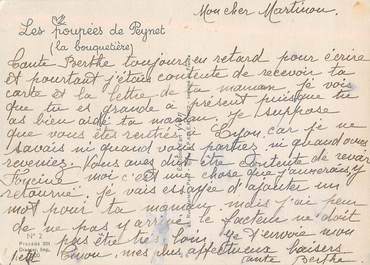 Mon cher Martinou.
Les poupées de Peynet
(la bouquetière)
Tante Berthe toujours en retard pour écrire
et pourtant j'étais contente de recevoir ta
carte et la lettre de ta maman. Je vois
que tu es grande à présent puisque tu
as bien aidé ta maman. Je suppose
que vous êtes rentrés à Dijon, car je ne
savais ni quand vous partiez ni quand vous
reveniez. Vous avez dû être contente de revoir
moi c'est une chose que j'aimerais, y
retourner. je vais essayer d'ajouter un
mot pour ta maman, mais j'ai peur
de ne pas y arriver le facteur ne doit
pas être très loin. je t'envoie mon
mes plus affectueux baisers
tante Berthe.
N° 2